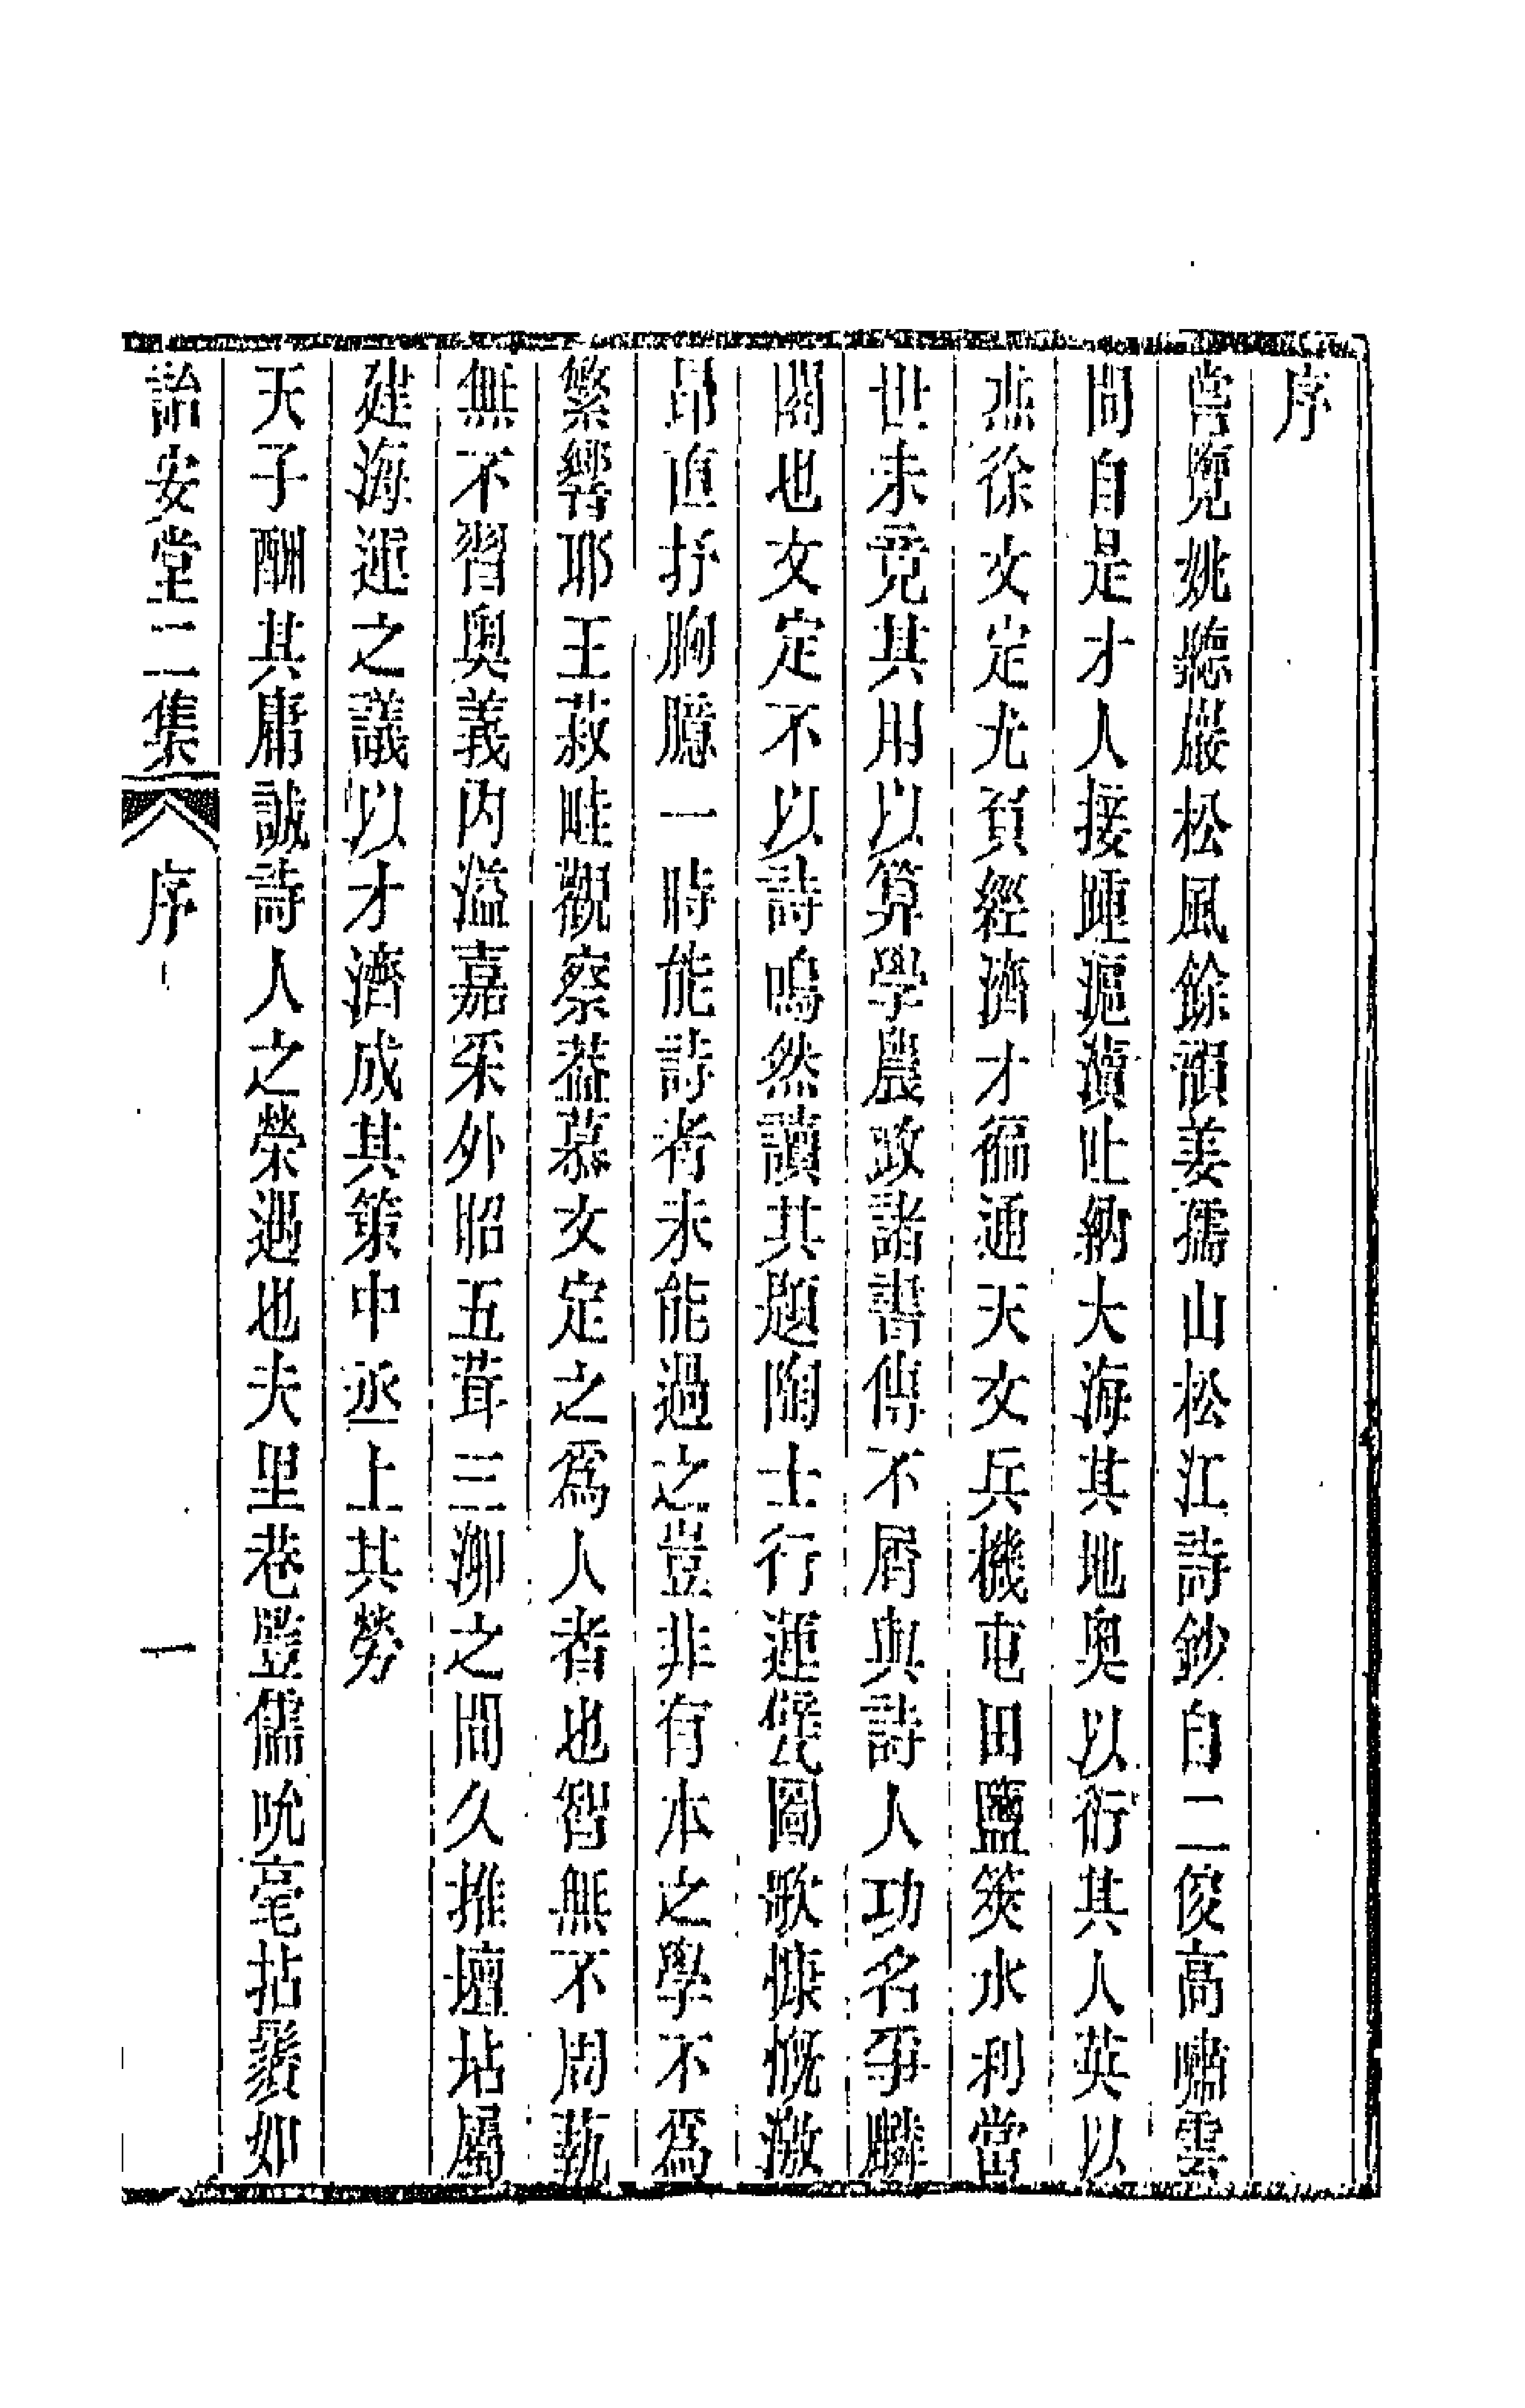 序
嘗覽姚聽巖松風餘韻姜孺山松江詩鈔自二俊高嘯雲
間自是才人接踵漚瀆吐納大海其地奧以衍其人英以
燕徐文定尤負經濟才徧通天文兵機屯田鹽筴水利當
世未竟其用以算學農政諸書傳不屑與詩人功名爭麟
閣也文定不以詩鳴然讀其題陶士行運甓圖歌慷慨激
昂直抒胸臆一時能詩者未能過之豈非有本之學不爲
繁響耶王菽畦觀察葢慕文定之爲人者也智無不周蓺
無不習奥義內溢嘉采外昭五茸三泖之間久推壇坫屬
建海運之議以才濟成其策中丞上其勞
天子酬其庸誠詩人之榮遇也夫里巷豎儒吮毫拈鬚如
詒安堂二集 序 一